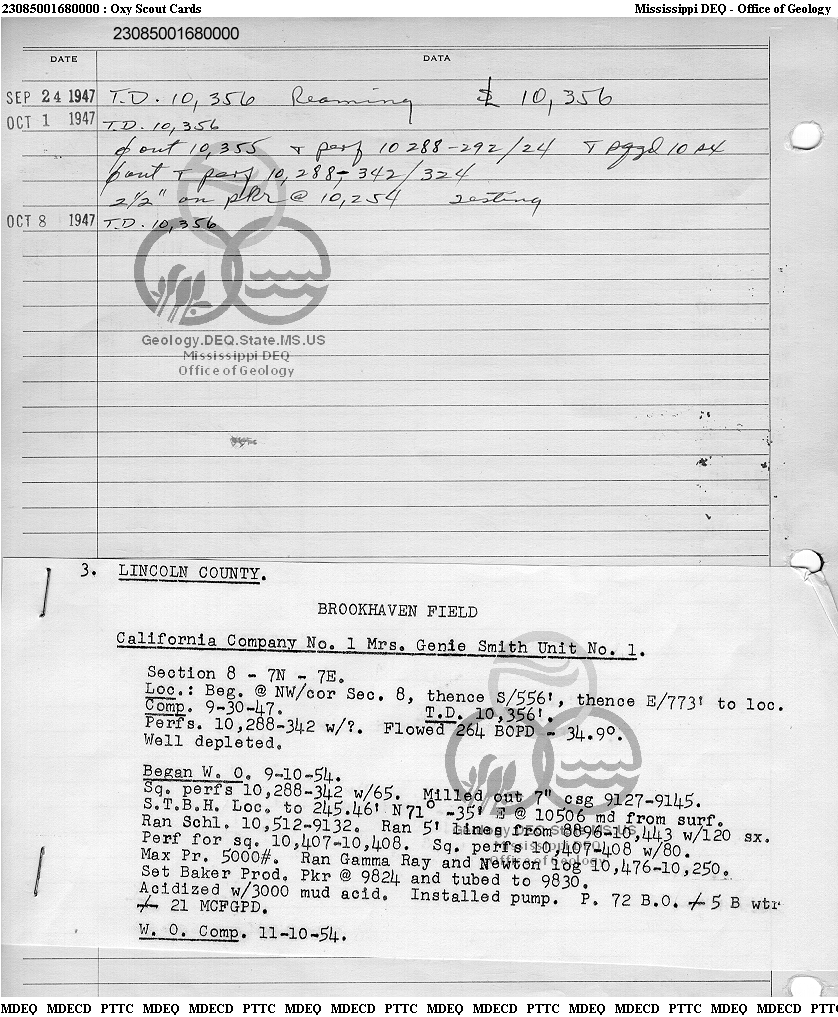 23085001680000 : Oxy Scout Cards Mississippi DEQ - Office of Geology
23085001680000
DATE DATA
SEP 24 1947 T.D. 10,356 Reaming 10,356
OCT 1 1947 T.D. 10,356
out 10,355 + perf 10 288-292/24 + pggd 10 sx
out + perf 10,288-342/324
2½" on pkr @ 10,254 testing
OCT 8 1947 T.D. 10,356
Geology.DEQ.State.MS.US
Mississippi DEQ
Office of Geology
3. LINCOLN COUNTY.
BROOKHAVEN FIELD
California Company No. 1 Mrs. Genie Smith Unit No. 1.
Section 8 - 7N - 7E.
Loc.: Beg. @ NW/cor Sec. 8, thence S/556', thence E/773' to loc.
Comp. 9-30-47. T.D. 10,356'.
Perfs. 10,288-342 w/?. Flowed 264 BOPD - 34.9º.
Well depleted.
Began W. O. 9-10-54.
Sq. perfs 10,288-342 w/65. Milled out 7" csg 9127-9145.
S.T.B.H. Loc. to 245.46' N 71º -35' E @ 10506 md from surf.
Ran Schl. 10,512-9132. Ran 5' Lines from 8896-10,443 w/120 sx.
Perf for sq. 10,407-10,408. Sq. perfs 10,407-408 w/80.
Max Pr. 5000#. Ran Gamma Ray and Newton log 10,476-10,250.
Set Baker Prod. Pkr @ 9824 and tubed to 9830.
Acidized w/3000 mud acid. Installed pump. P. 72 B.O. + 5 B wtr
+ 21 MCFGPD.
W. O. Comp. 11-10-54.
MDEQ MDECD PTTC MDEQ MDECD PTTC MDEQ MDECD PTTC MDEQ MDECD PTTC MDEQ MDECD PTTC MDEQ MDECD PTTC